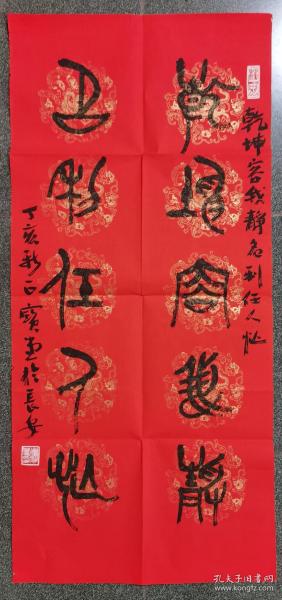 乾坤容我静名利任人忙
乾坤容我靜
名利任人忙
丁亥新正寶於長安
孔夫子旧书网